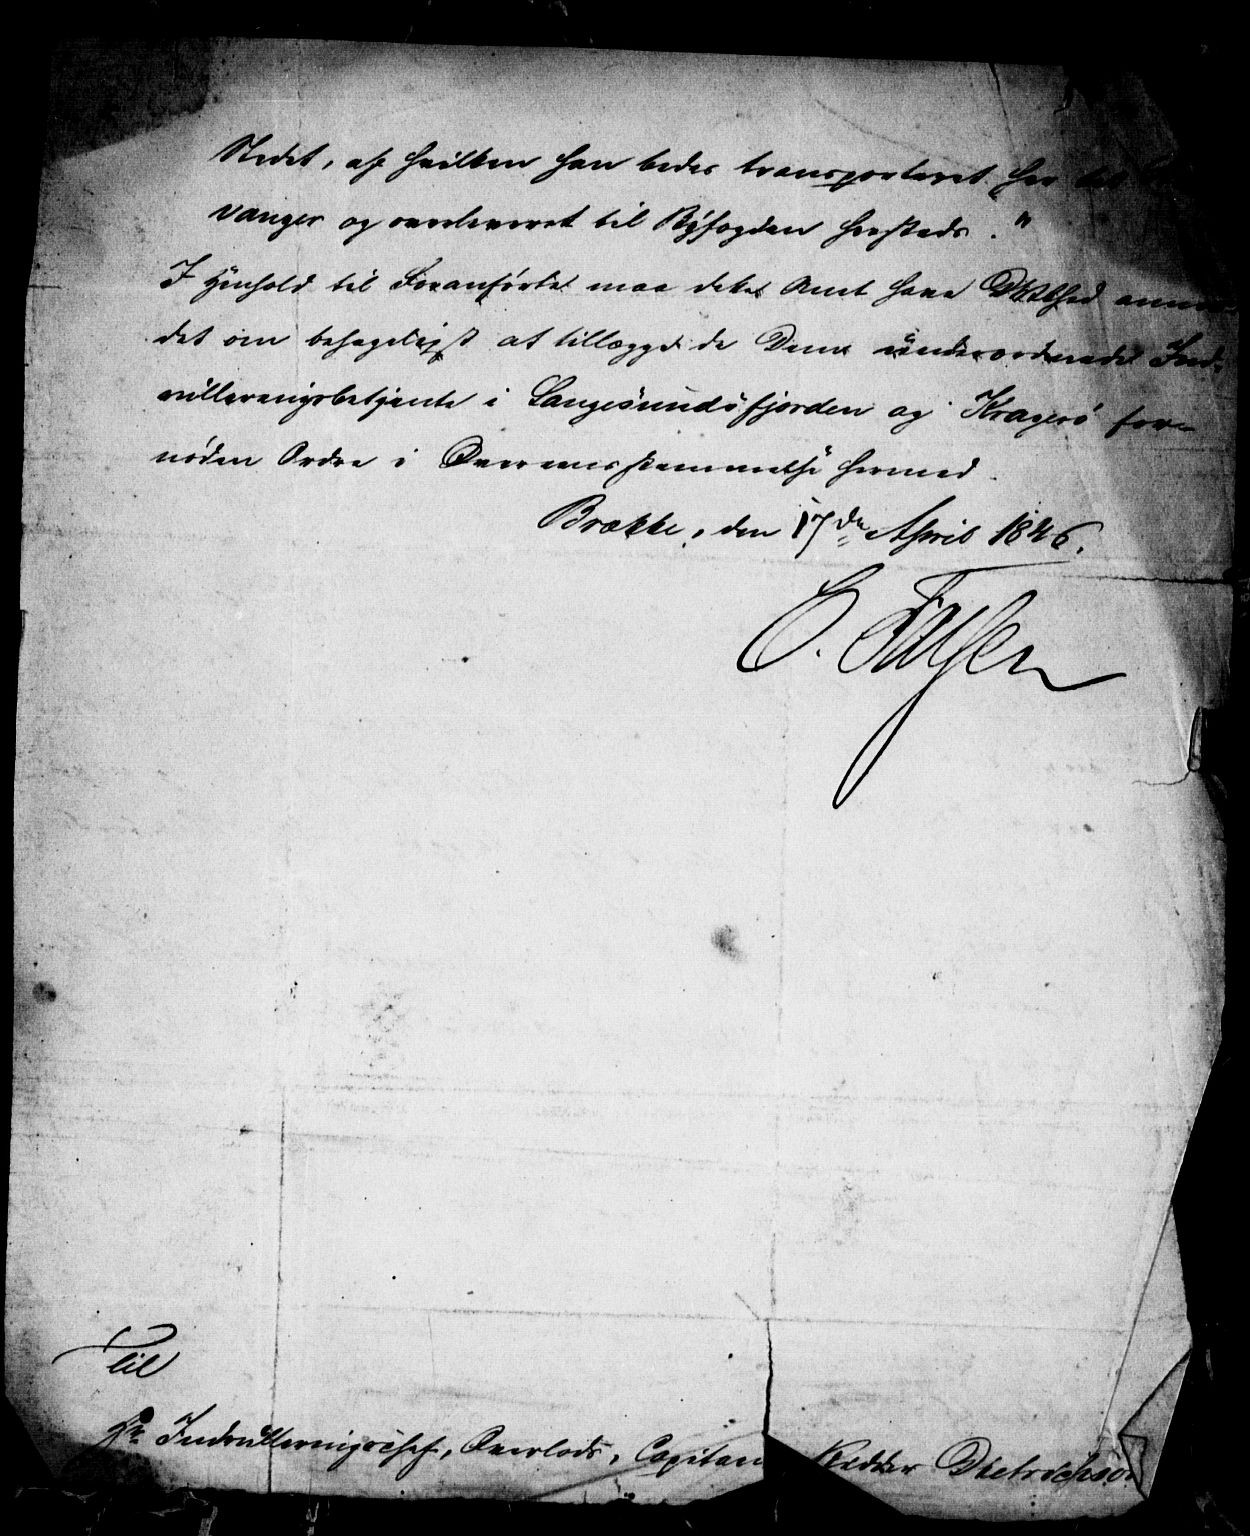 Stedet, af hvilken han bedes transporteret her til
vanger og overleveret til Byfogden hersteds."
I Henhold til Foranførte maa dette Amt have DHrhed anmo-
det om behageligst at tillægge de Dem underordnede Ind-
rulleringsbetjente i Langesundsfjorden og Kragerø for-
nøden Ordre i Overensstemmelse hermed.
Brække, den 17de April 1846.
Til
Hr Indrulleringschef, Overlods, Capitain Ridder Dietrichson